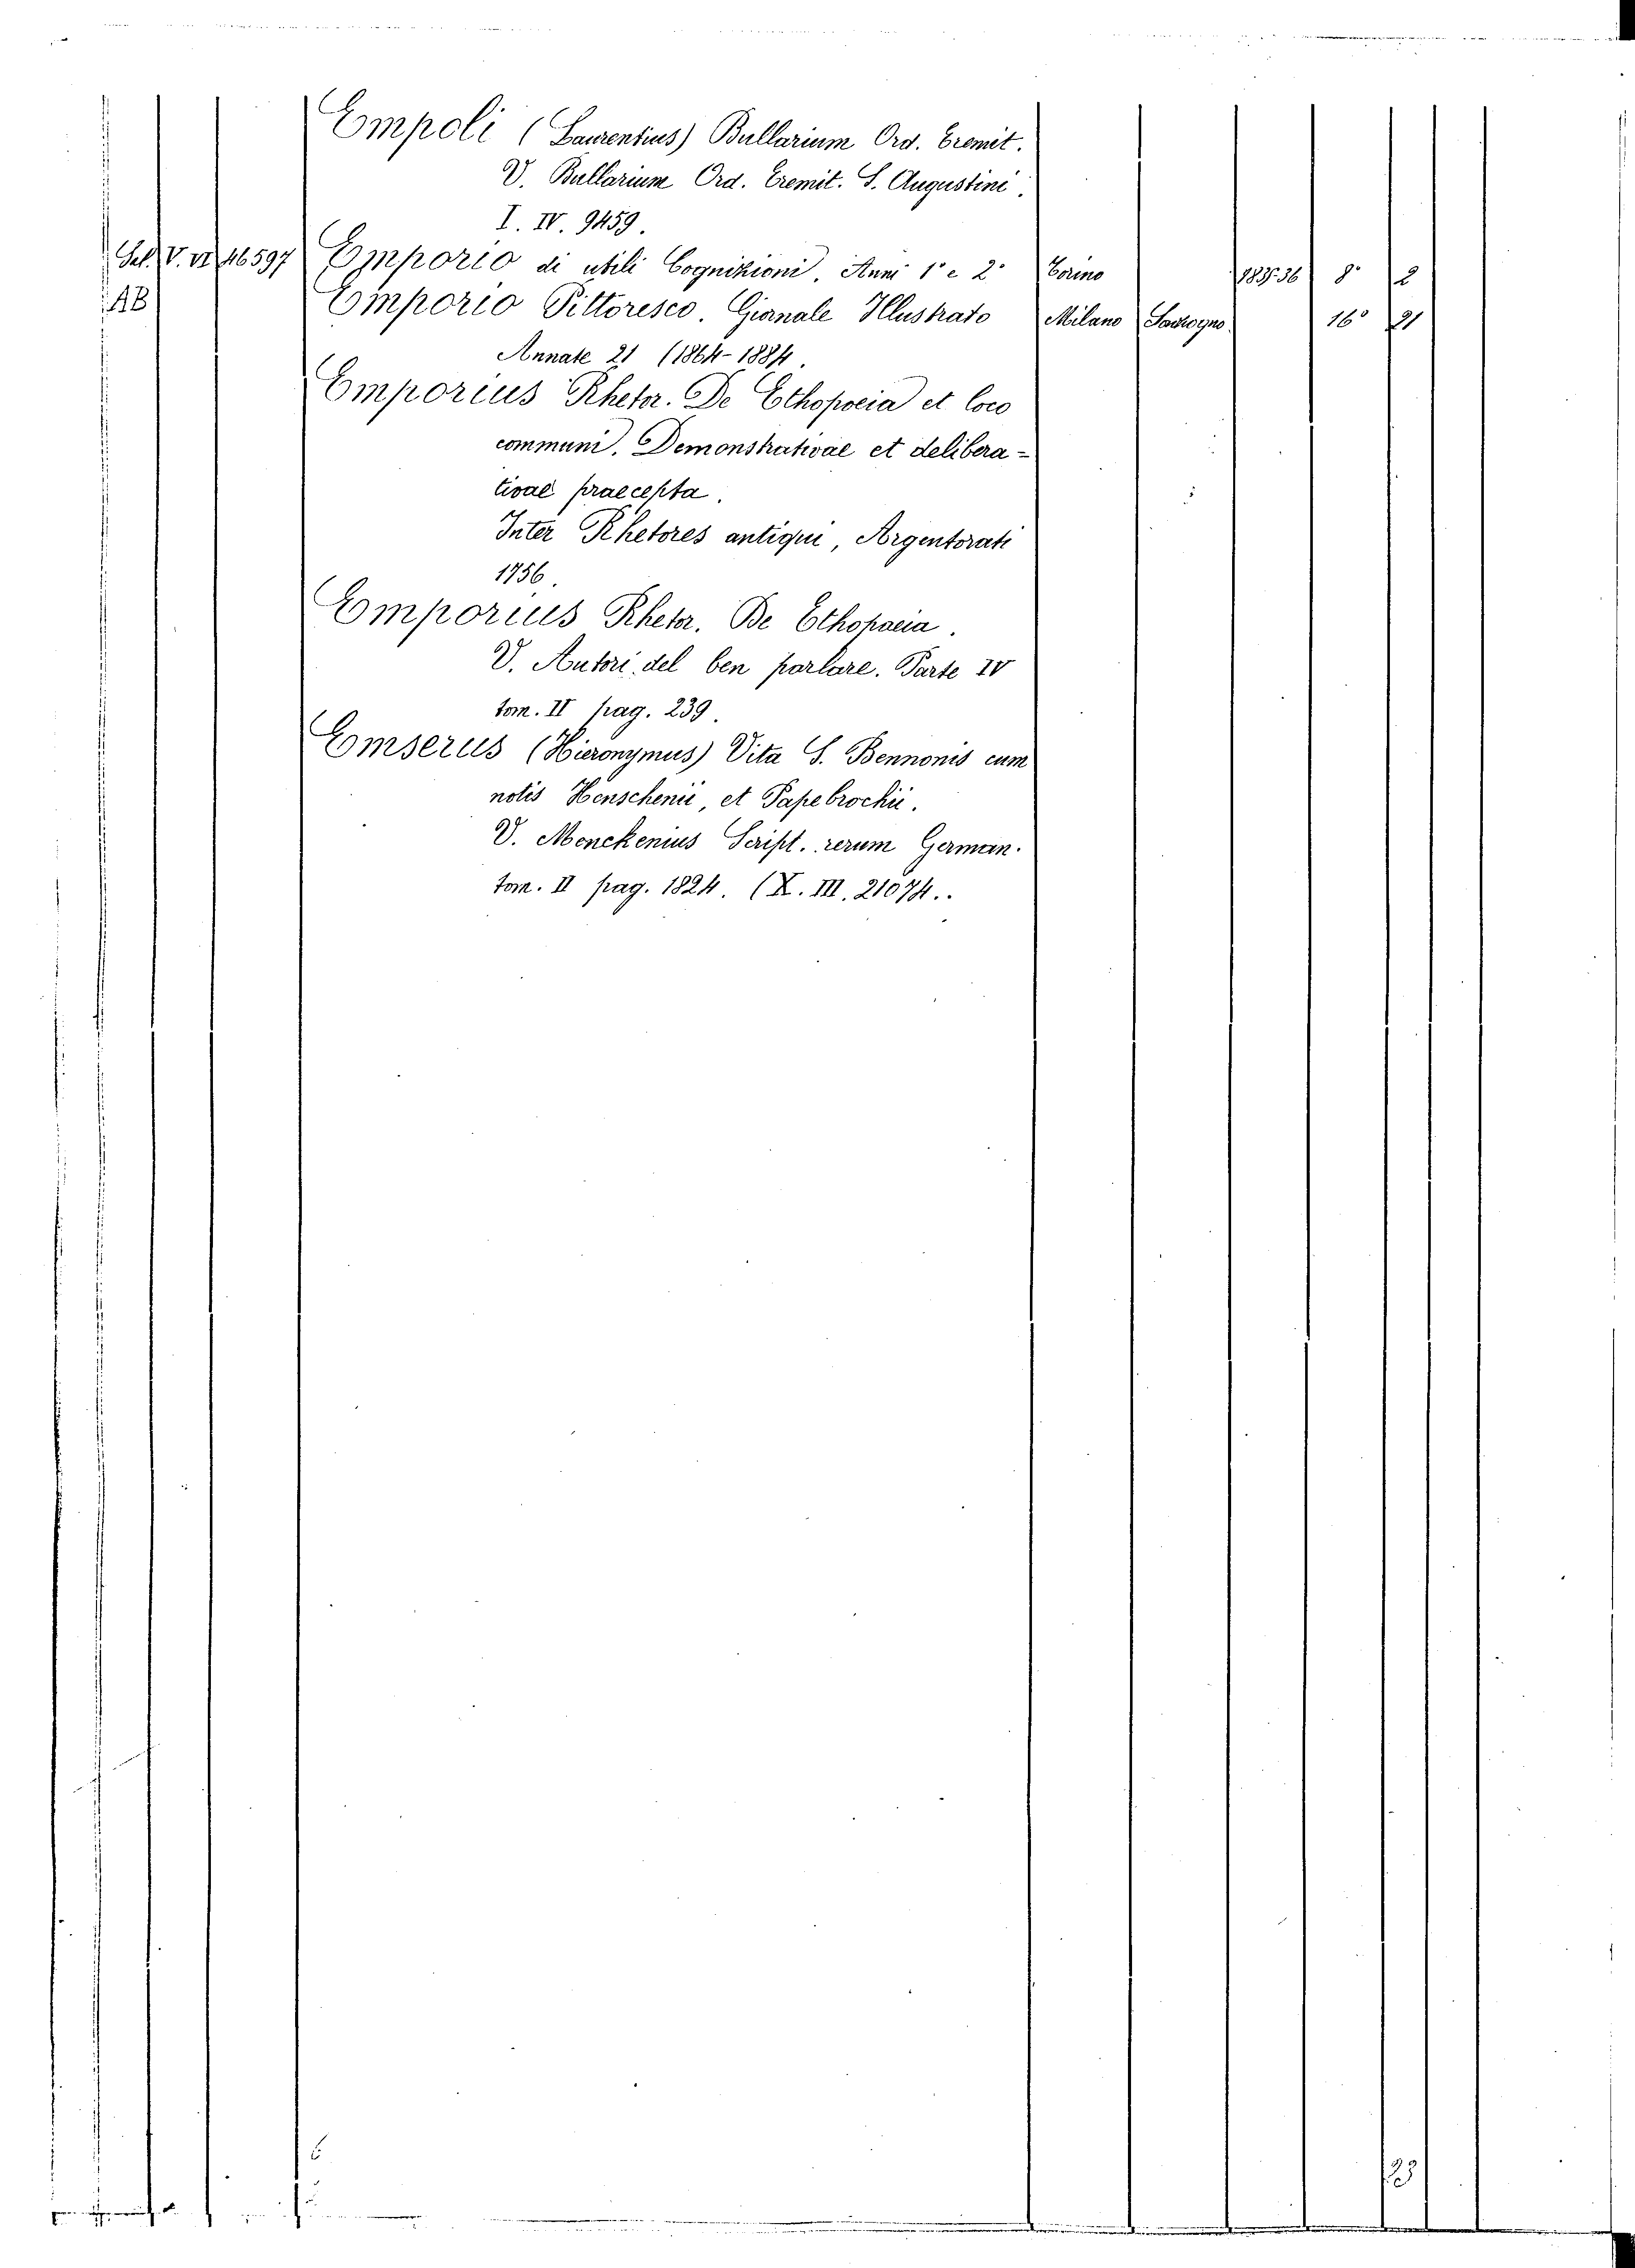 Empoli (Laurentius) Bullarium Ord. Eremit.
V. Bullarium Ord. Eremit. S. Augustini.
I. IV. 9459.
V. VI 46597 Emporio di utili Cognizioni. Anni 1° e 2° Torino 1835-36 8° 2
AB Emporio Pittoresco. Giornale Illustrato Milano Sonzogno 16° 21
Annate 21 (1864-1884.
Emporius Rhetor. De Ethopoeia et loco
communi. Demonstrativae et delibera-
tivae praecepta.
Inter Rhetores antiqui, Argentorati
1756.
Emporius Rhetor. De Ethopoeia.
V. Autori del ben parlare. Parte IV
tom. II pag. 239.
Emserus (Hieronymus) Vita S. Bennonis cum
notis Henschenii, et Papebrochii.
V. Menckenius Script. rerum German.
tom. II pag. 1824. (X. III. 21074..
23